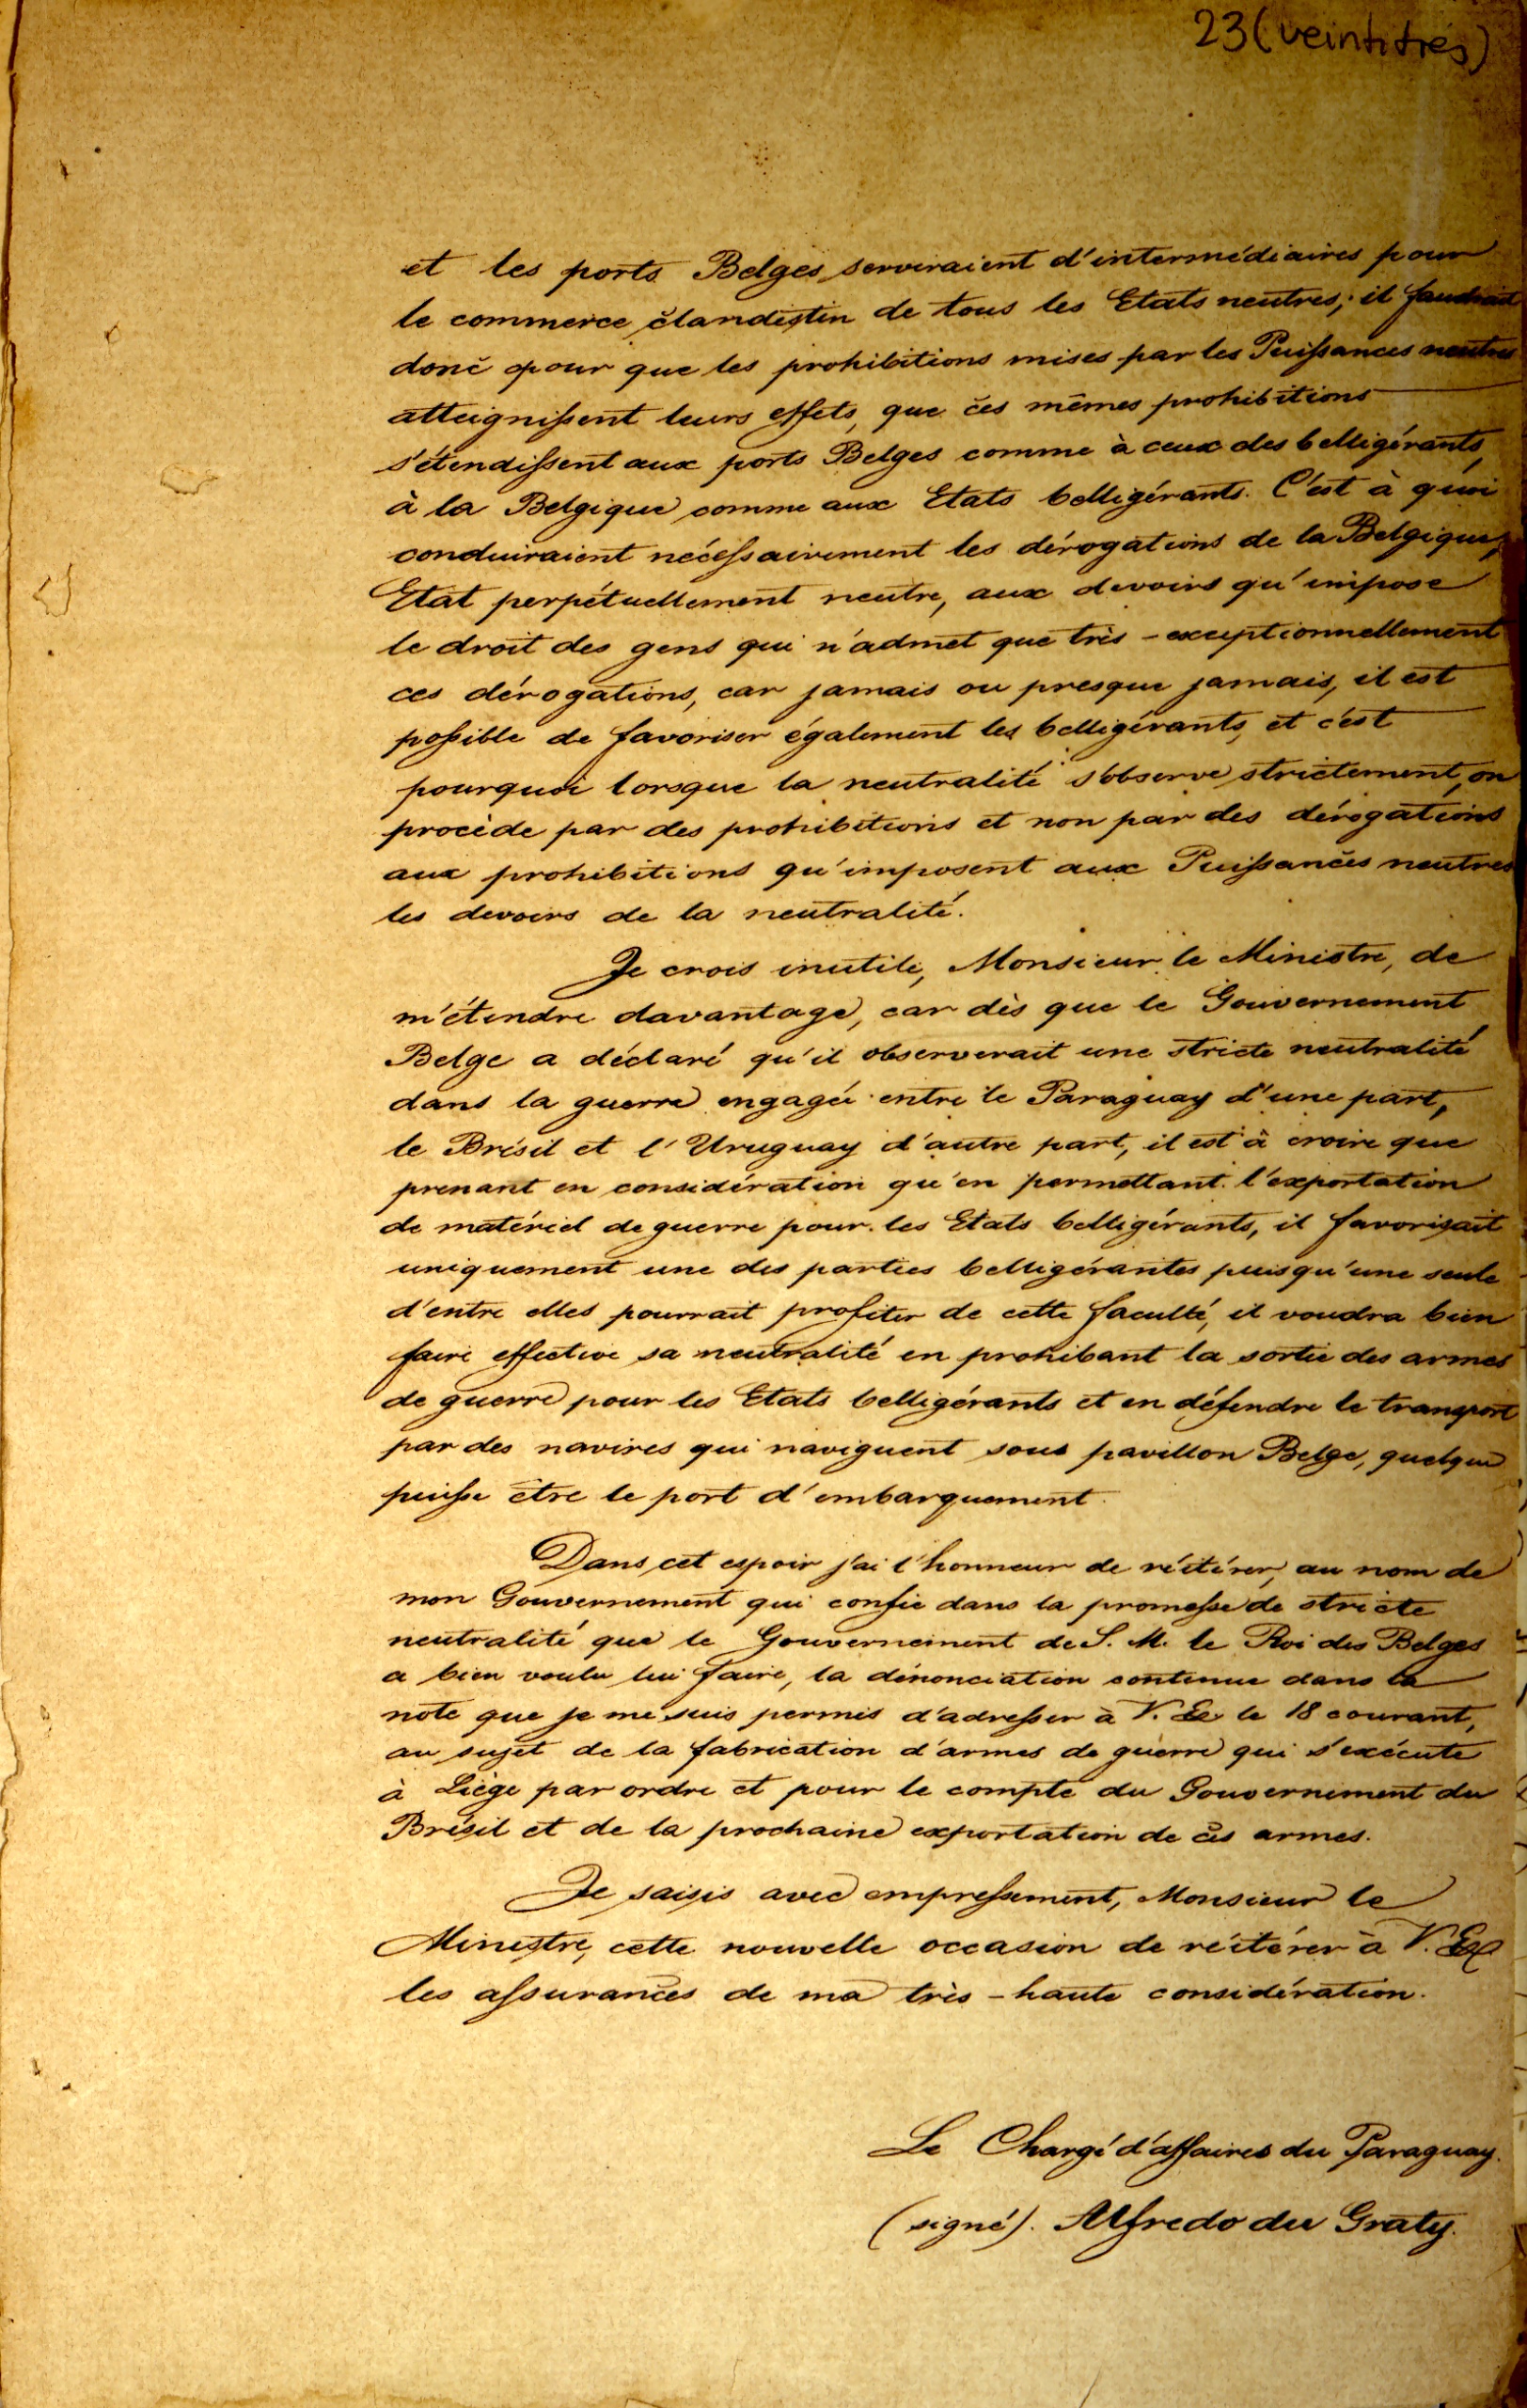 23 (veintitrés)
et les ports Belges serviraient d'intermédiaires pour
le commerce clandestin de tous les Etats neutres; il faudrait
donc pour que les prohibitions mises par les Puissances neutres
atteignissent leurs effets, que ces mêmes prohibitions
s'étendissent aux ports Belges comme à ceux des belligérants,
à la Belgique comme aux Etats belligérants. C'est à quoi
conduiraient nécessairement les dérogations de la Belgique,
Etat perpétuellement neutre, aux devoirs qu'impose
le droit des gens qui n'admet que très-exceptionnellement
ces dérogations, car jamais ou presque jamais, il est
possible de favoriser également les belligérants, et c'est
pourquoi lorsque la neutralité s'observe strictement, on
procède par des prohibitions et non par des dérogations
aux prohibitions qu'imposent aux Puissances neutres
les devoirs de la neutralité.
Je crois inutile, Monsieur le Ministre, de
m'étendre davantage, car dès que le Gouvernement
Belge a déclaré qu'il observerait une stricte neutralité
dans la guerre engagée entre le Paraguay d'une part,
le Brésil et l'Uruguay d'autre part, il est à croire que
prenant en considération qu'en permettant l'exportation
de matériel de guerre pour les Etats belligérants, il favorisait
uniquement une des parties belligérantes puisqu'une seule
d'entre elles pourrait profiter de cette faculté, il voudra bien
faire effective sa neutralité en prohibant la sortie des armes
de guerre pour les Etats belligérants et en défendre le transport
par des navires qui naviguent sous pavillon Belge, quelque
puisse être le port d'embarquement.
Dans cet espoir j'ai l'honneur de réitérer, au nom de
mon Gouvernement qui confie dans la promesse de stricte
neutralité que le Gouvernement de S. M. le Roi des Belges
a bien voulu lui faire, la dénonciation contenue dans la
note que je me suis permis d'adresser à V. Ex le 18 courant,
au sujet de la fabrication d'armes de guerre qui s'exécute
à Liège par ordre et pour le compte du Gouvernement du
Brésil et de la prochaine exportation de ces armes.
Je saisis avec empressement, Monsieur le
Ministre, cette nouvelle occasion de réitérer à V. Ex
les assurances de ma très-haute considération.
Le Chargé d'affaires du Paraguay.
(signé). Alfredo du Graty.